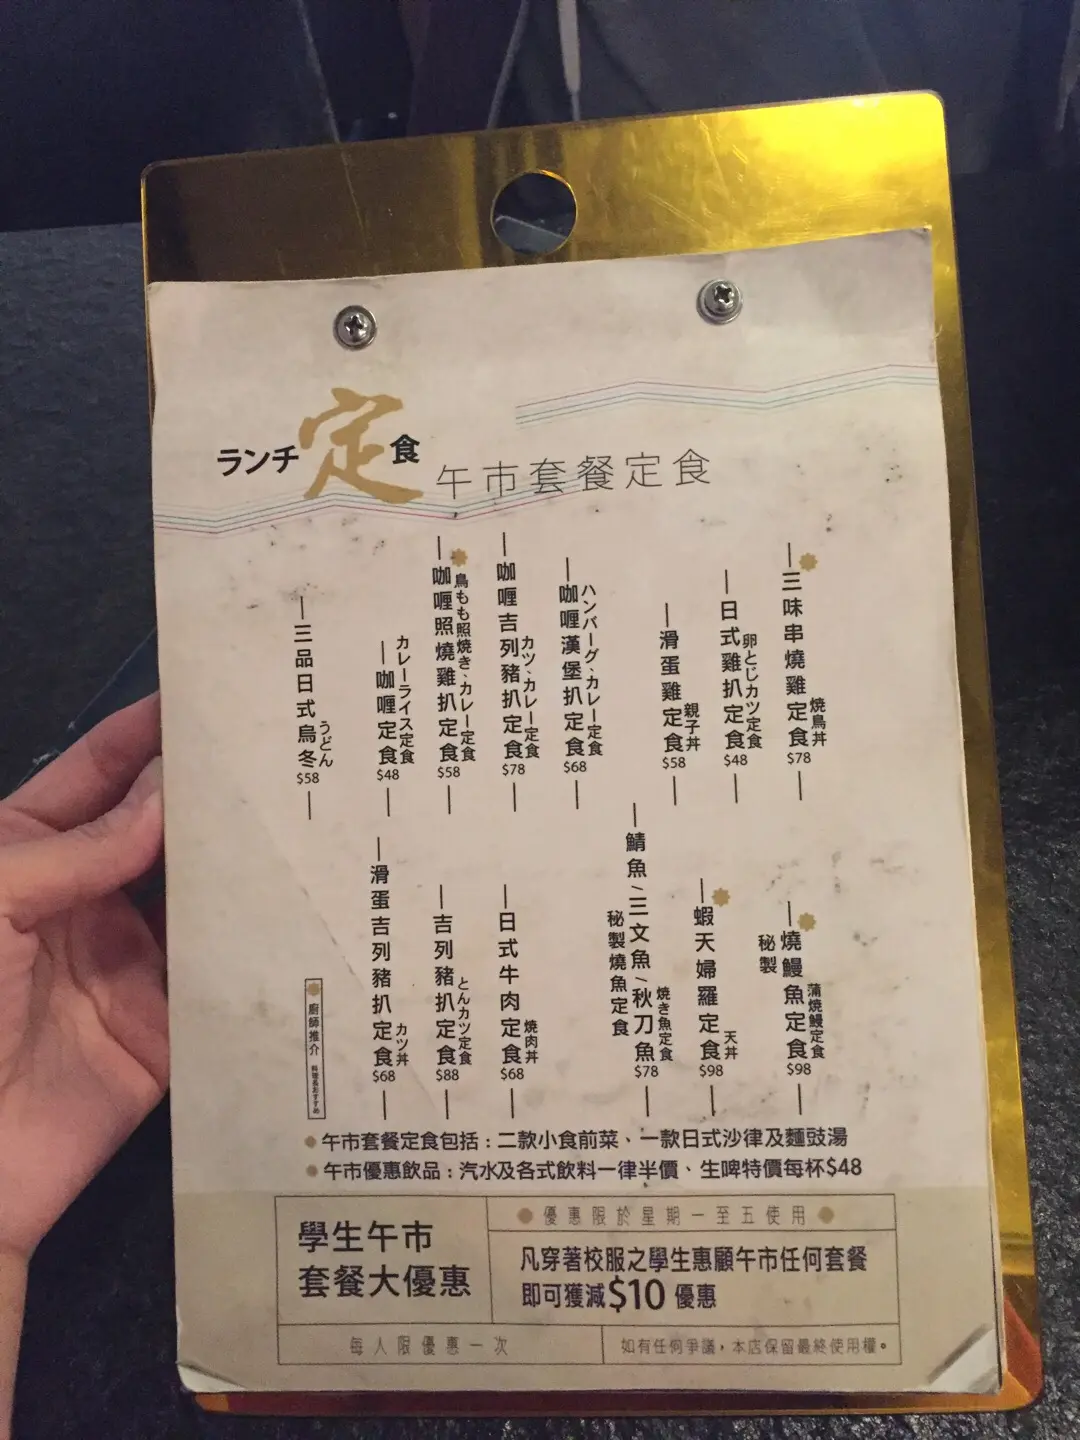 ランチ定食
午市套餐定食
三味串燒雞定食
焼鳥丼
$78
日式雞扒定食
卵とじカツ定食
$48
滑蛋雞定食
親子丼
$58
咖喱漢堡扒定食
ハンバーグ、カレー定食
$68
咖喱吉列豬扒定食
カツ、カレー定食
$78
咖喱照燒雞扒定食
鳥もも照焼き、カレー定食
$58
咖喱定食
カレーライス定食
$48
三品日式烏冬
うどん
$58
秘製
燒鰻魚定食
蒲焼鰻定食
$98
蝦天婦羅定食
天丼
$98
鯖魚/三文魚/秋刀魚
秘製燒魚定食
焼き魚定食
$78
日式牛肉定食
焼肉丼
$68
吉列豬扒定食
とんカツ定食
$88
滑蛋吉列豬扒定食
カツ丼
$68
廚師推介 料理長おすすめ
午市套餐定食包括：二款小食前菜、一款日式沙律及麵豉湯
午市優惠飲品：汽水及各式飲料一律半價、生啤特價每杯$48
學生午市
套餐大優惠
優惠限於星期一至五使用
凡穿著校服之學生惠顧午市任何套餐
即可獲減$10優惠
每人限優惠一次
如有任何爭議，本店保留最終使用權。